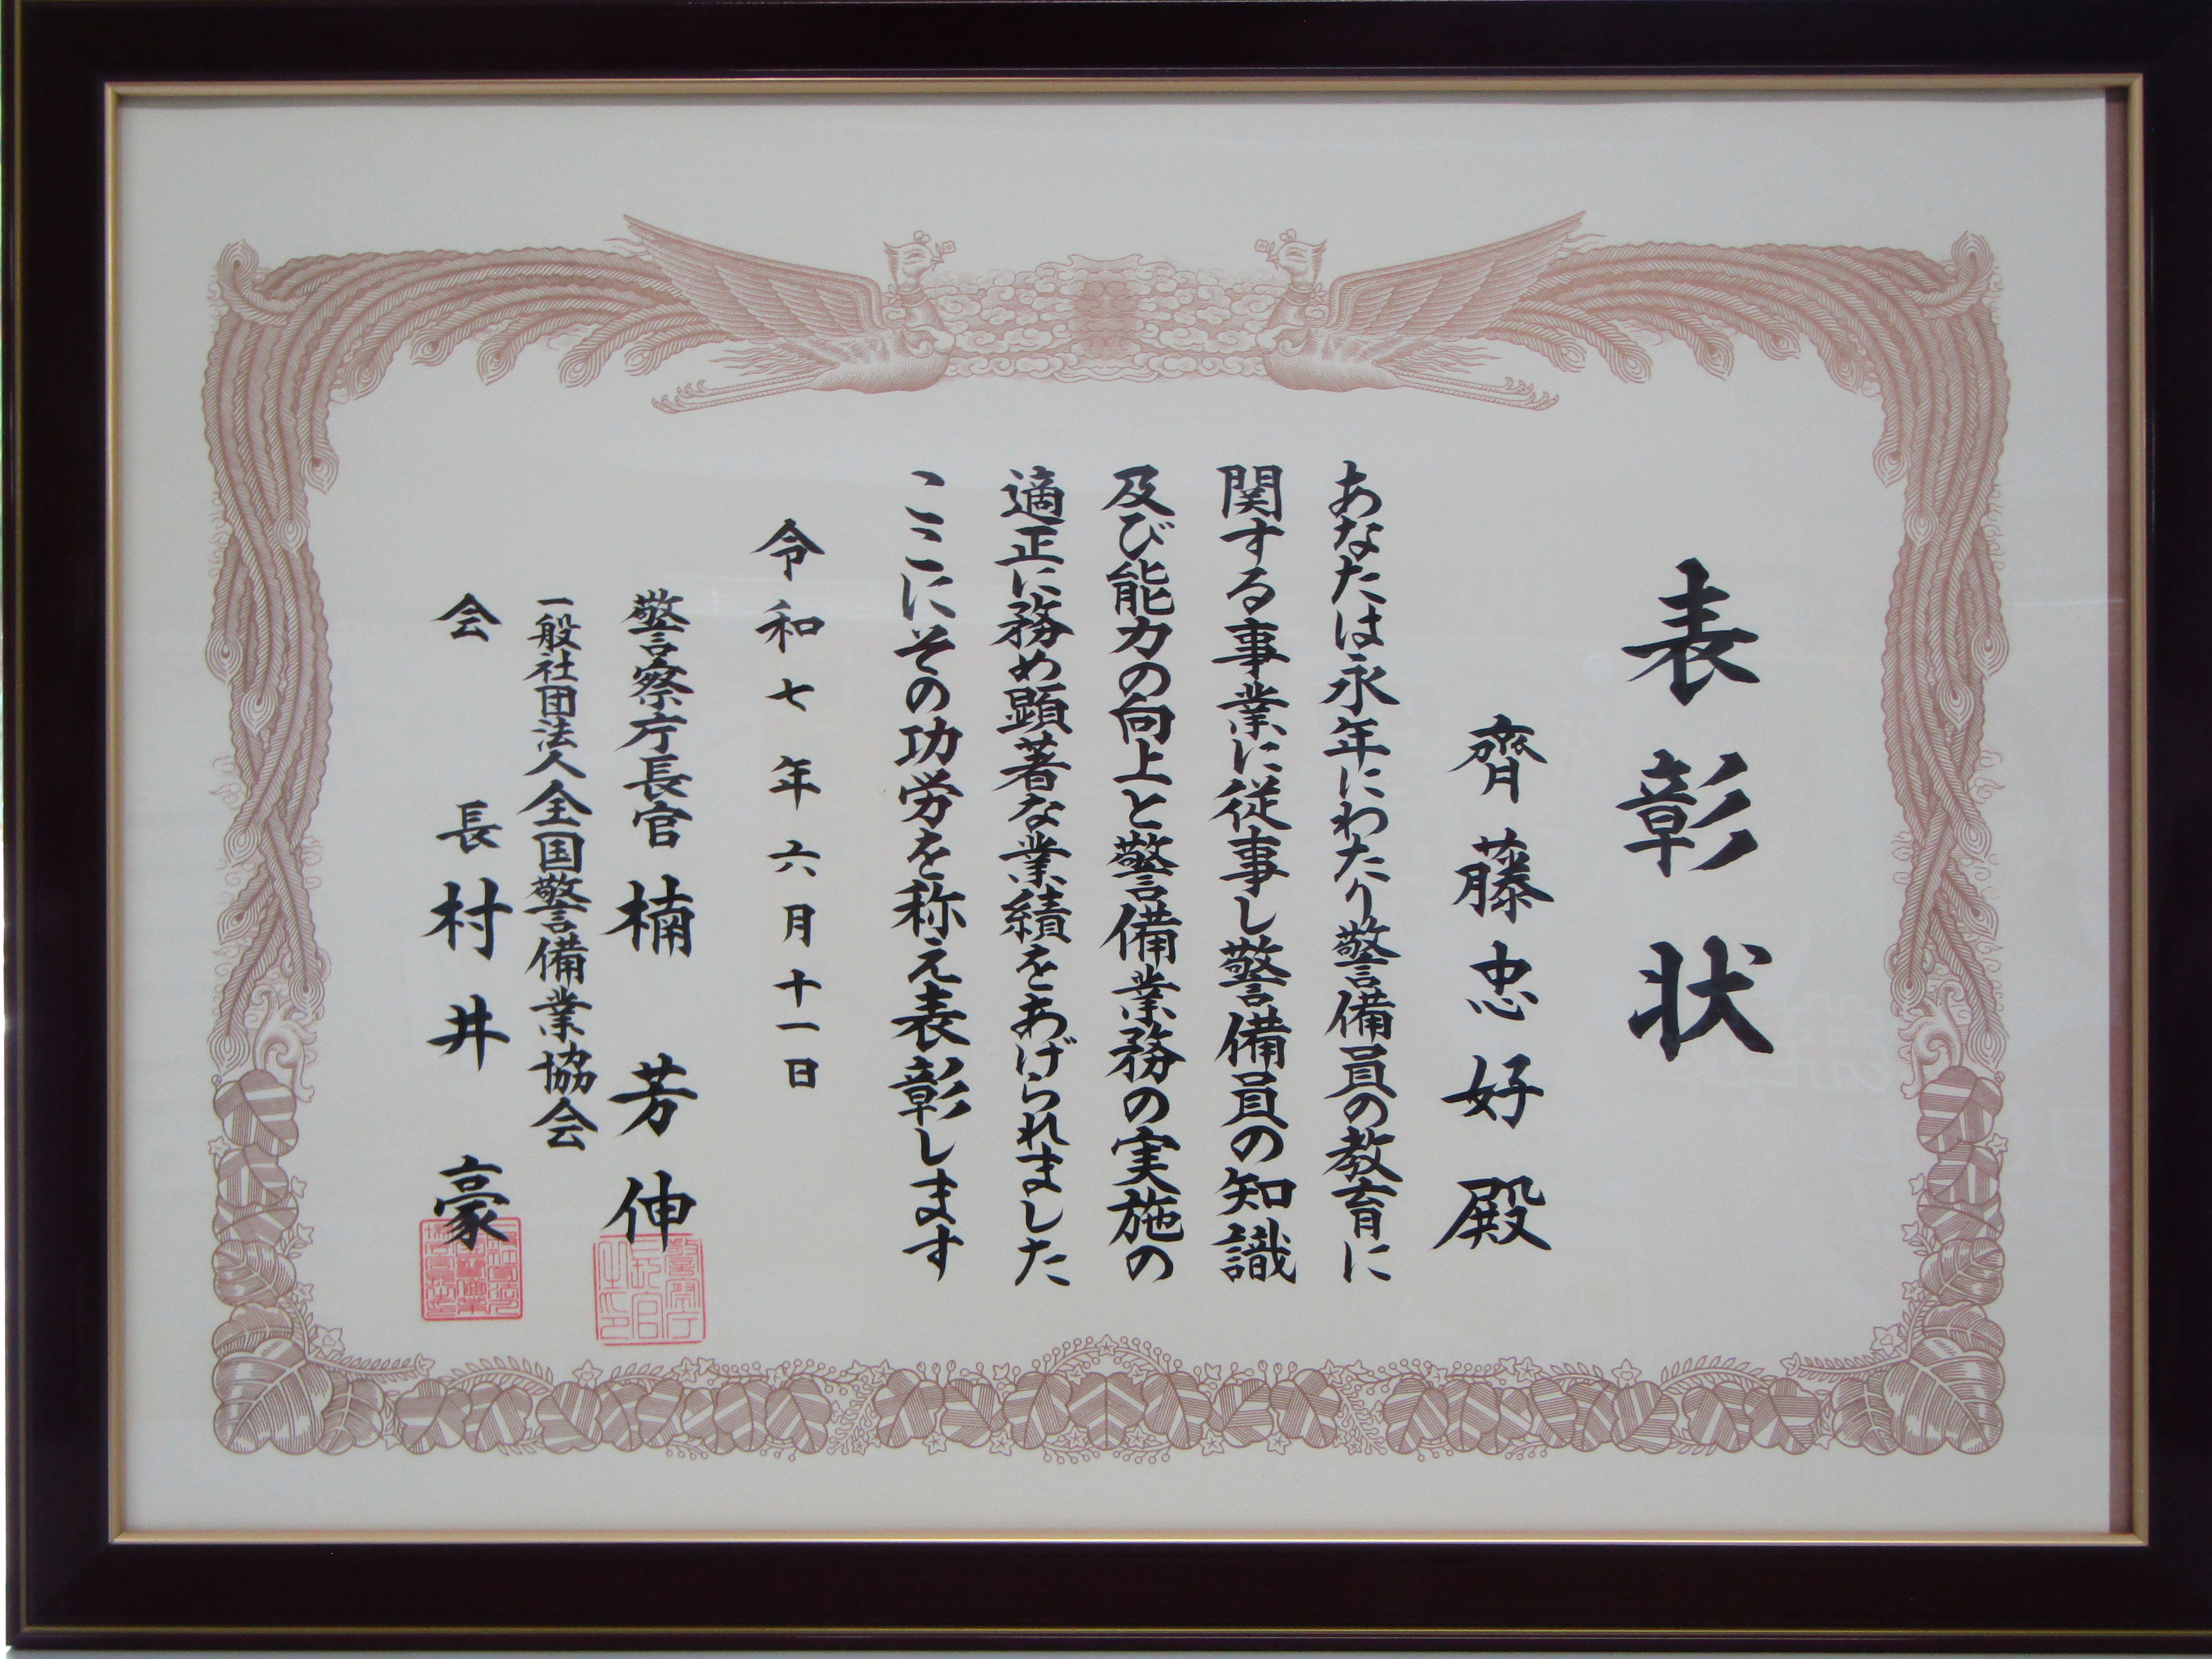 表彰状
齊藤忠好殿
あなたは永年にわたり警備員の教育に
関する事業に従事し警備員の知識
及び能力の向上と警備業務の実施の
適正に務め顕著な業績をあげられました
ここにその功労を称え表彰します
令和七年六月十一日
警察庁長官 楠芳伸
一般社団法人全国警備業協会
会長 村井豪
警察庁長官之印